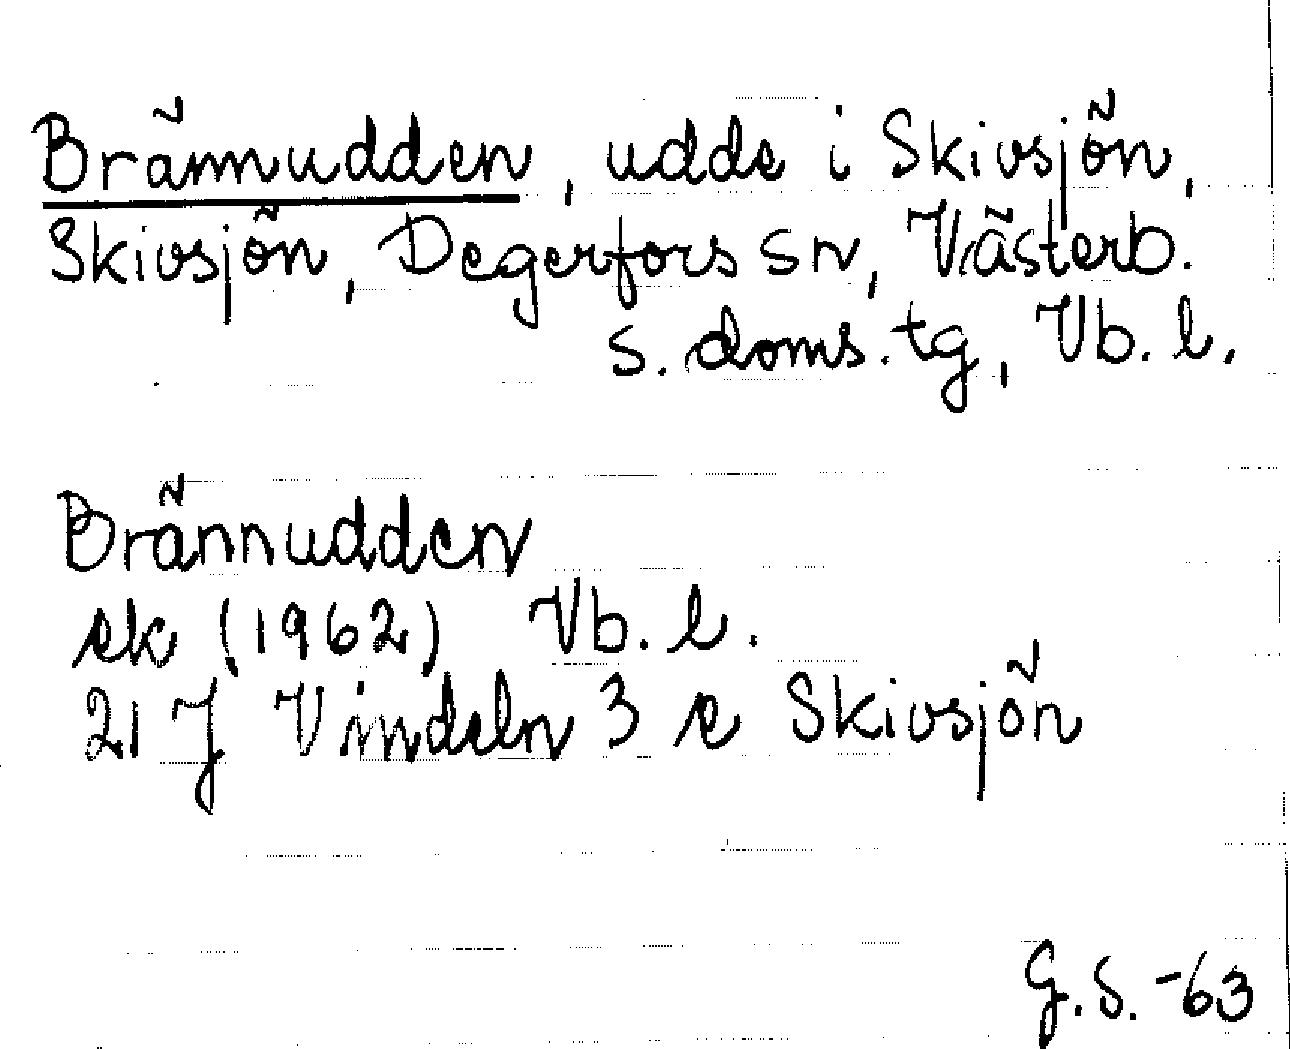 Brännudden, udde i Skivsjön,
Skivsjön, Degerfors sn, Västerb.
s. doms. tg, Vb. l.
Brännudden
ek (1962) Vb. l.
21 J Vindeln 3 e Skivsjön
G.S. -63